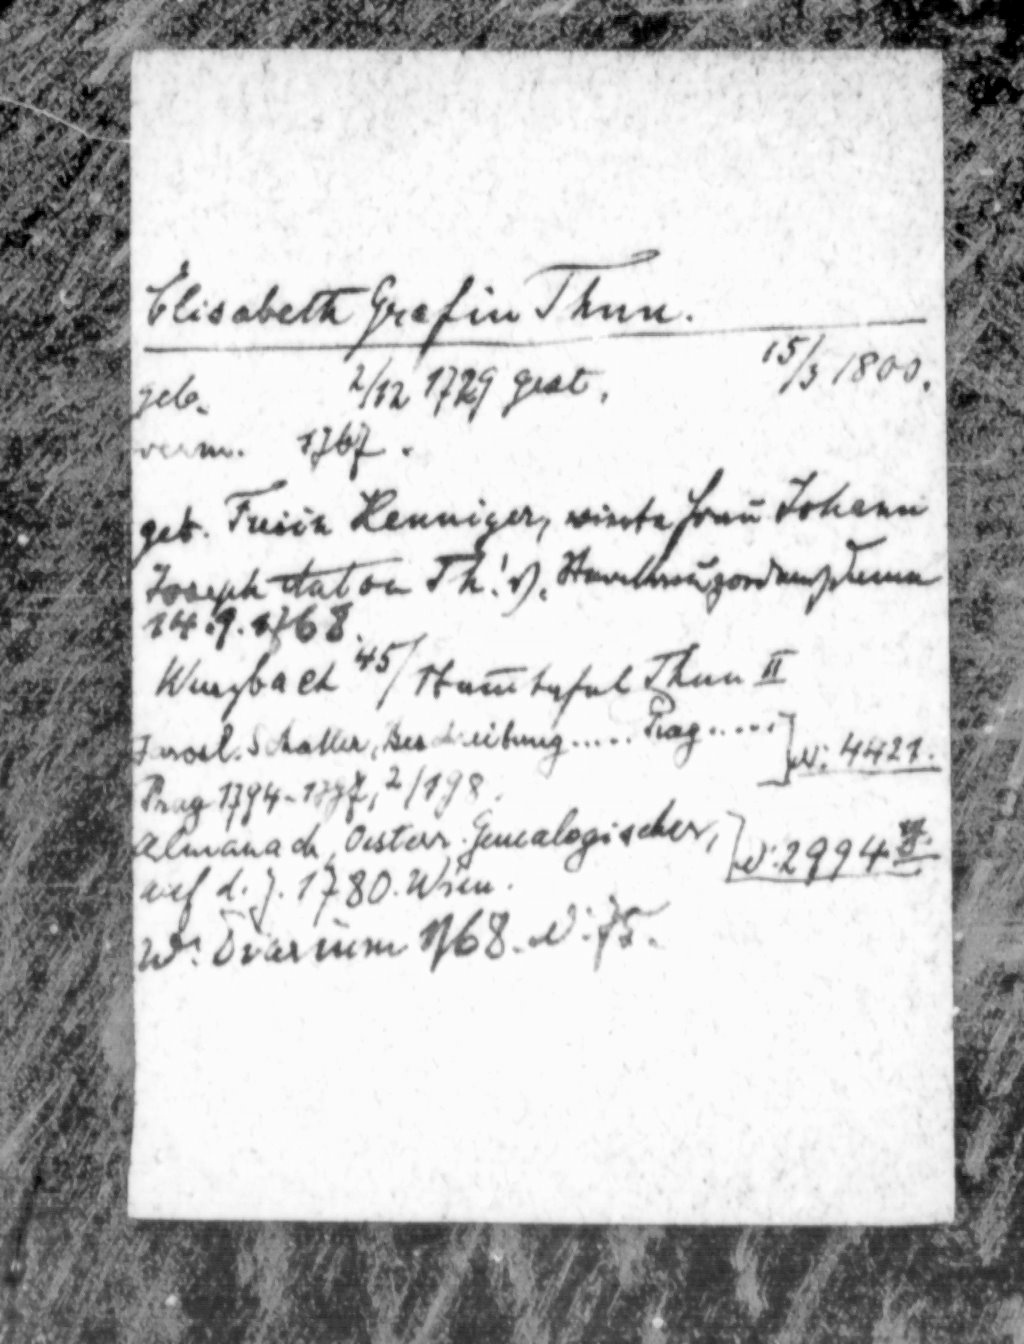 Elisabeth Gräfin Thun.
geb. 2/12 1729 gest. 15/3 1800.
verm. 1767.
geb. Freiin Henniger, vierte Frau Johann
Joseph Anton Th's. Sternkreuzordensdame
14.9.1768.
Wurzbach 45/ Stammtafel Thun II
Jarosl. Schaller, Beschreibung ..... Prag .....
Prag 1794-1797, 2/198. N: 4421.
Almanach, Oesterr. Genealogischer,
auf d. J. 1780. Wien. N: 2994
W. Diarium 1768. N: 75.